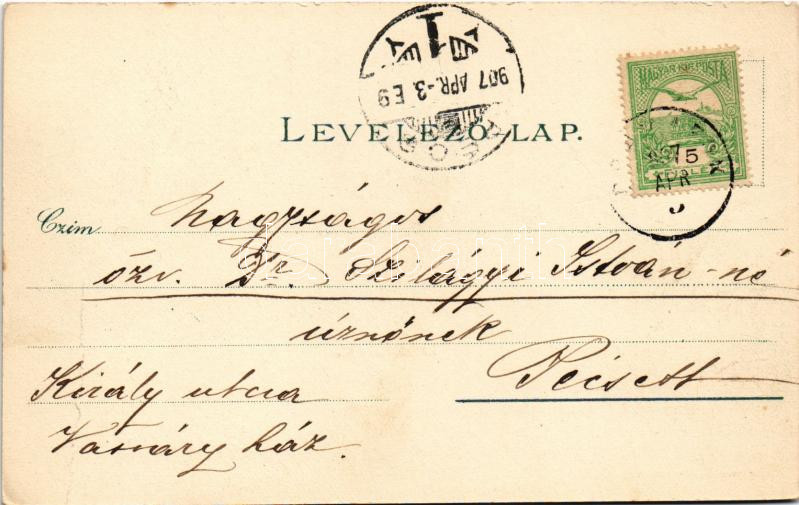 907 APR.-3. E9
LEVELEZŐ-LAP.
MAGYAR KIR. POSTA
5
907
APR
Czim
Nagyságos
özv. Dr. Szilágyi István-né
úrnőnek
Pécsett
Király utcza
Vasváry ház.